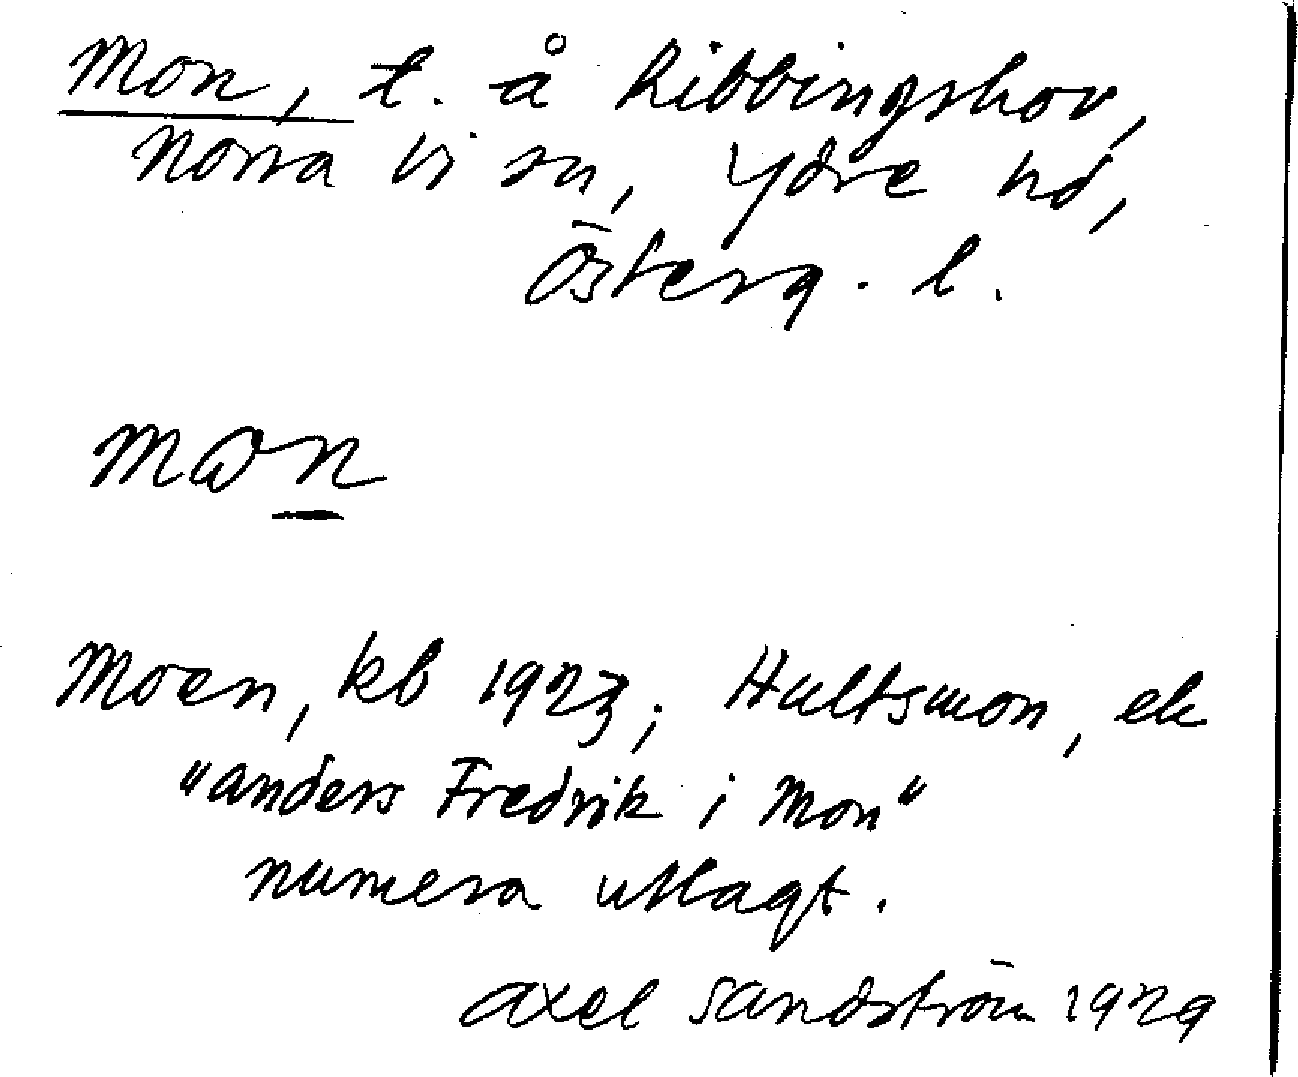 Mon, t. å Ribbingshov,
Norra Vi sn, Ydre hd,
Österg. l.
mɷn
Moen, kb 1923; Hultsmon, ek
"Anders Fredrik i Mon"
numera utlagt.
Axel Sandström 1929